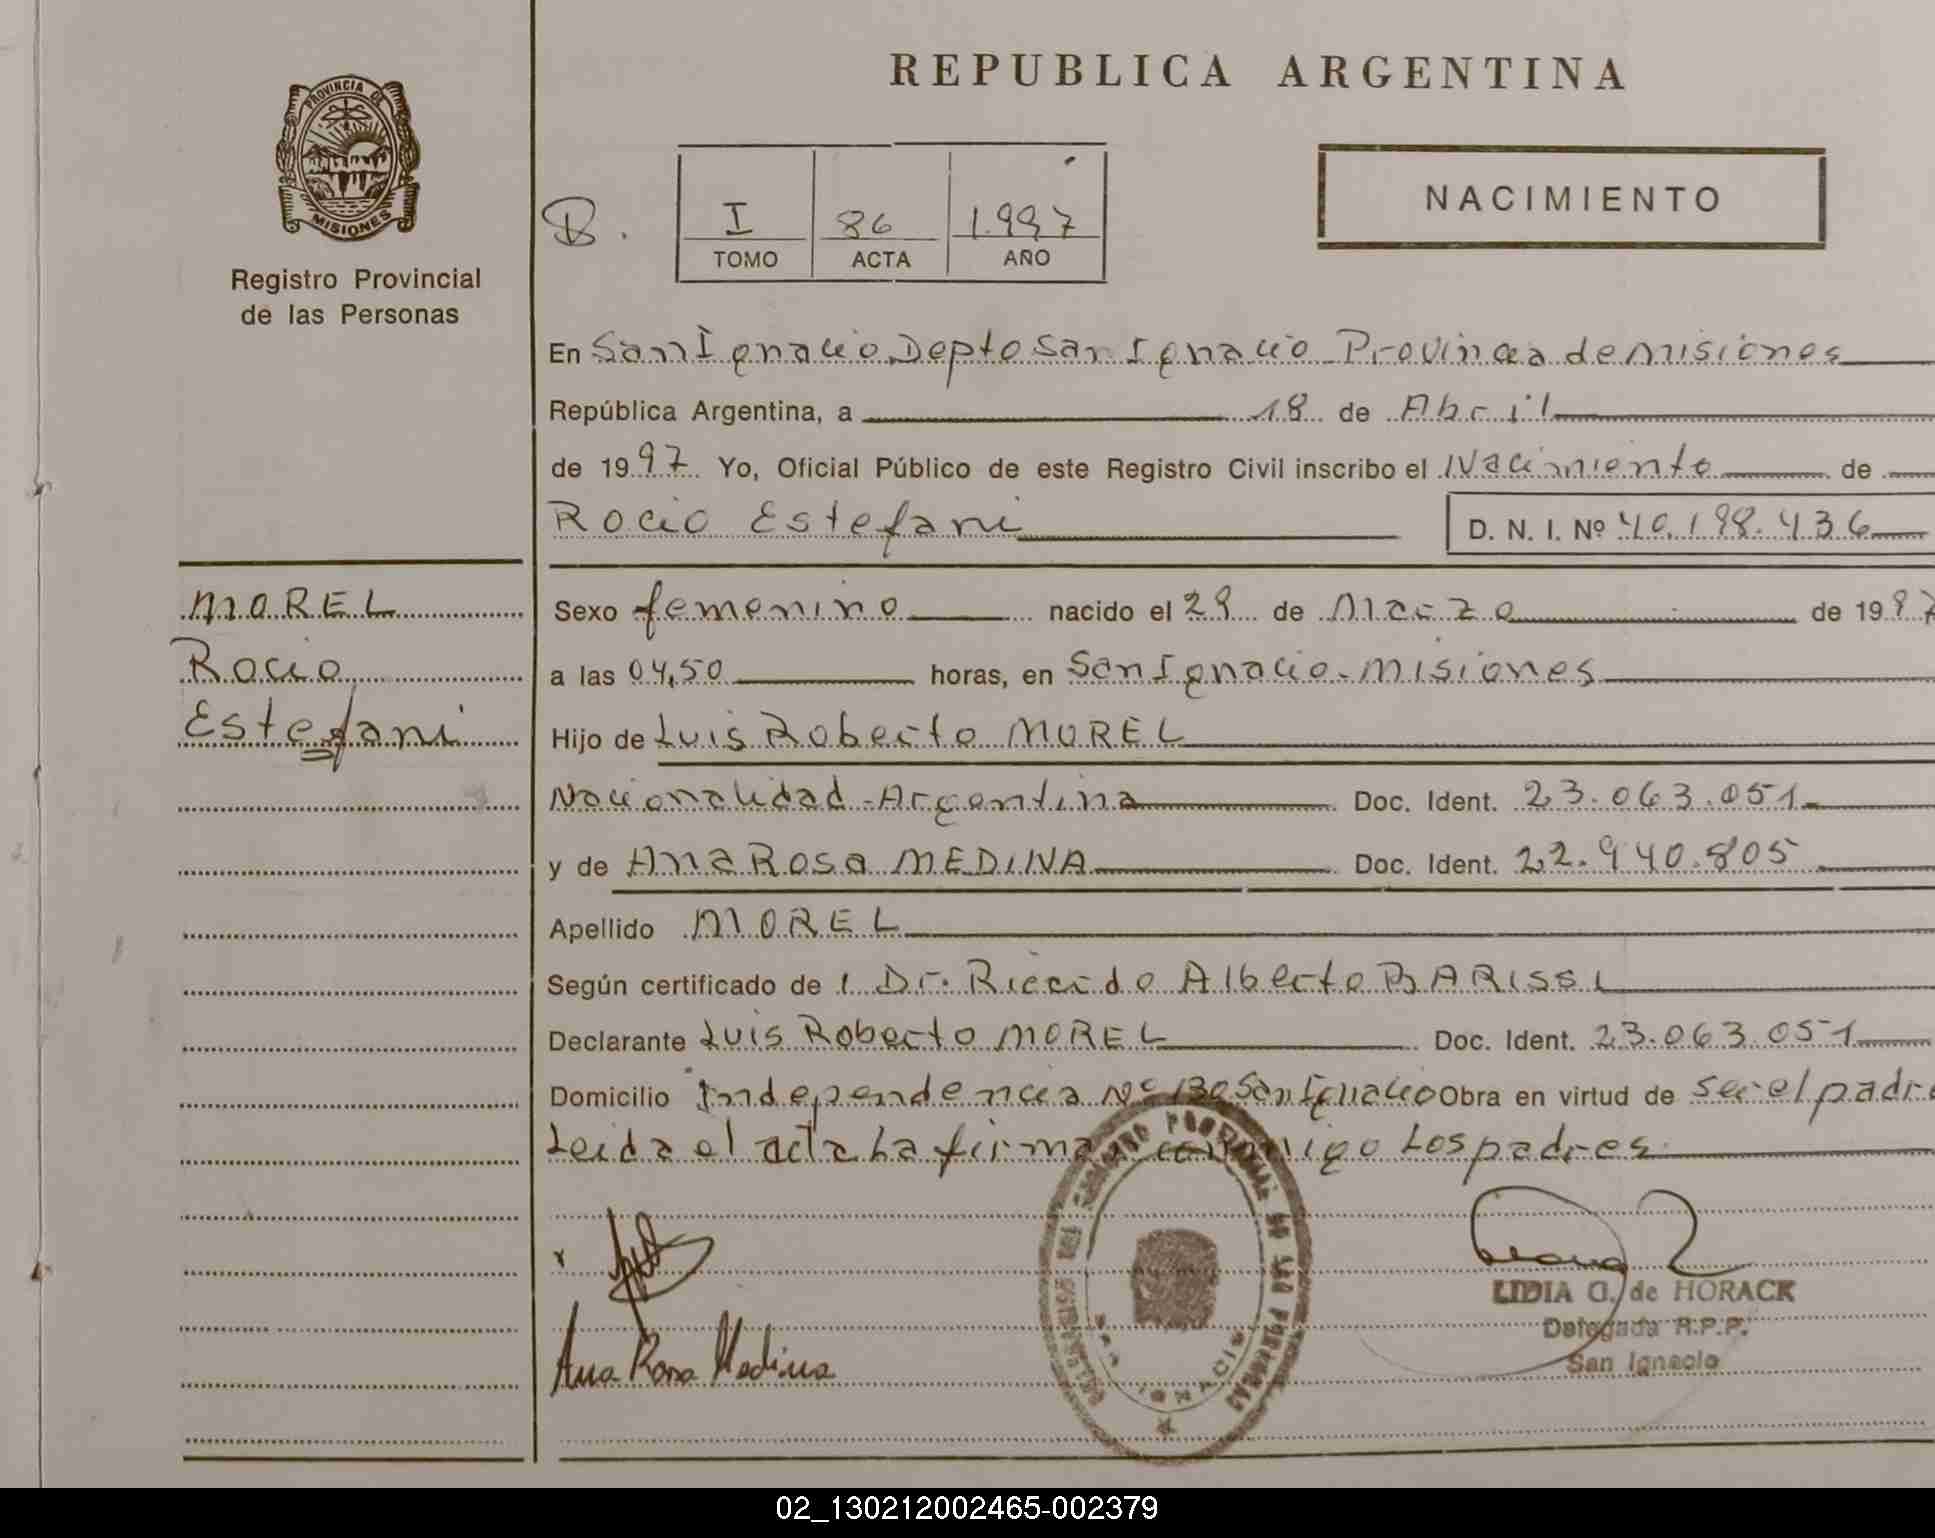 REPUBLICA ARGENTINA
PROVINCIA DE
MISIONES
Registro Provincial
de las Personas
B.
I 86 1.997
TOMO ACTA AÑO
NACIMIENTO
En San Ignacio, Depto San Ignacio Provincia de Misiones
República Argentina, a 18 de Abril
de 1997 Yo, Oficial Público de este Registro Civil inscribo el Nacimiento de
Rocio Estefani D. N. I. Nº 40.198.436
MOREL
Rocio
Estefani
Sexo femenino nacido el 29 de Marzo de 1997
a las 04,50 horas, en San Ignacio - Misiones
Hijo de Luis Roberto MOREL
Nacionalidad - Argentina Doc. Ident. 23.063.051
y de Ana Rosa MEDINA Doc. Ident. 22.940.805
Apellido MOREL
Según certificado de l Dr. Ricardo Alberto BARISSI
Declarante Luis Roberto MOREL Doc. Ident. 23.063.051
Domicilio Independencia Nº 130 San Ignacio Obra en virtud de ser el padre
Leida el acta La firman conmigo Los padres
Ana Rosa Medina
REGISTRO PROVINCIAL DE LAS PERSONAS
SAN IGNACIO
LIDIA G. de HORACK
Delegada R.P.P.
San Ignacio
02_130212002465-002379